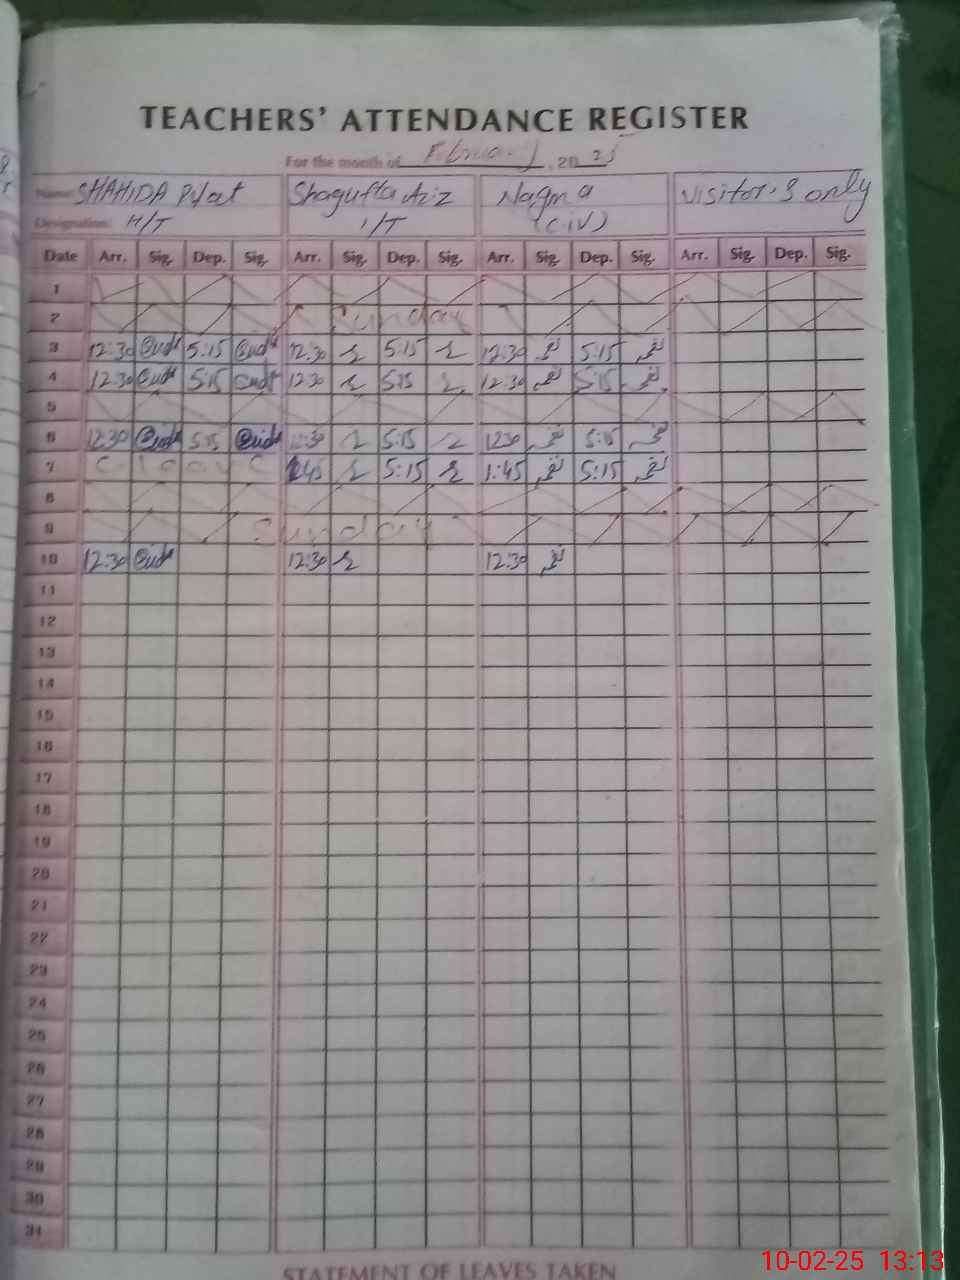 TEACHERS' ATTENDANCE REGISTER
For the month of February, 2025
Name: SHAHIDA Shagufta Aziz Nagma Visitor's only
Designation: H/T 1/T (CIV)
Date Arr. Sig. Dep. Sig. Arr. Sig. Dep. Sig. Arr. Sig. Dep. Sig. Arr. Sig. Dep. Sig.
1
2 Sunday
3 12:30 5:15 12:30 5:15 12:30 5:15
4 12:30 5:15 12:30 5:15 12:30 5:15
5
6 12:30 5:15 12:30 5:15 1230 5:15
7 C leave 1:45 5:15 1:45 5:15
8
9 Sunday
10 12:30 12:30 12:30
11
12
13
14
15
16
17
18
19
20
21
22
23
24
25
26
27
28
29
30
31
STATEMENT OF LEAVES TAKEN
10-02-25 13:13